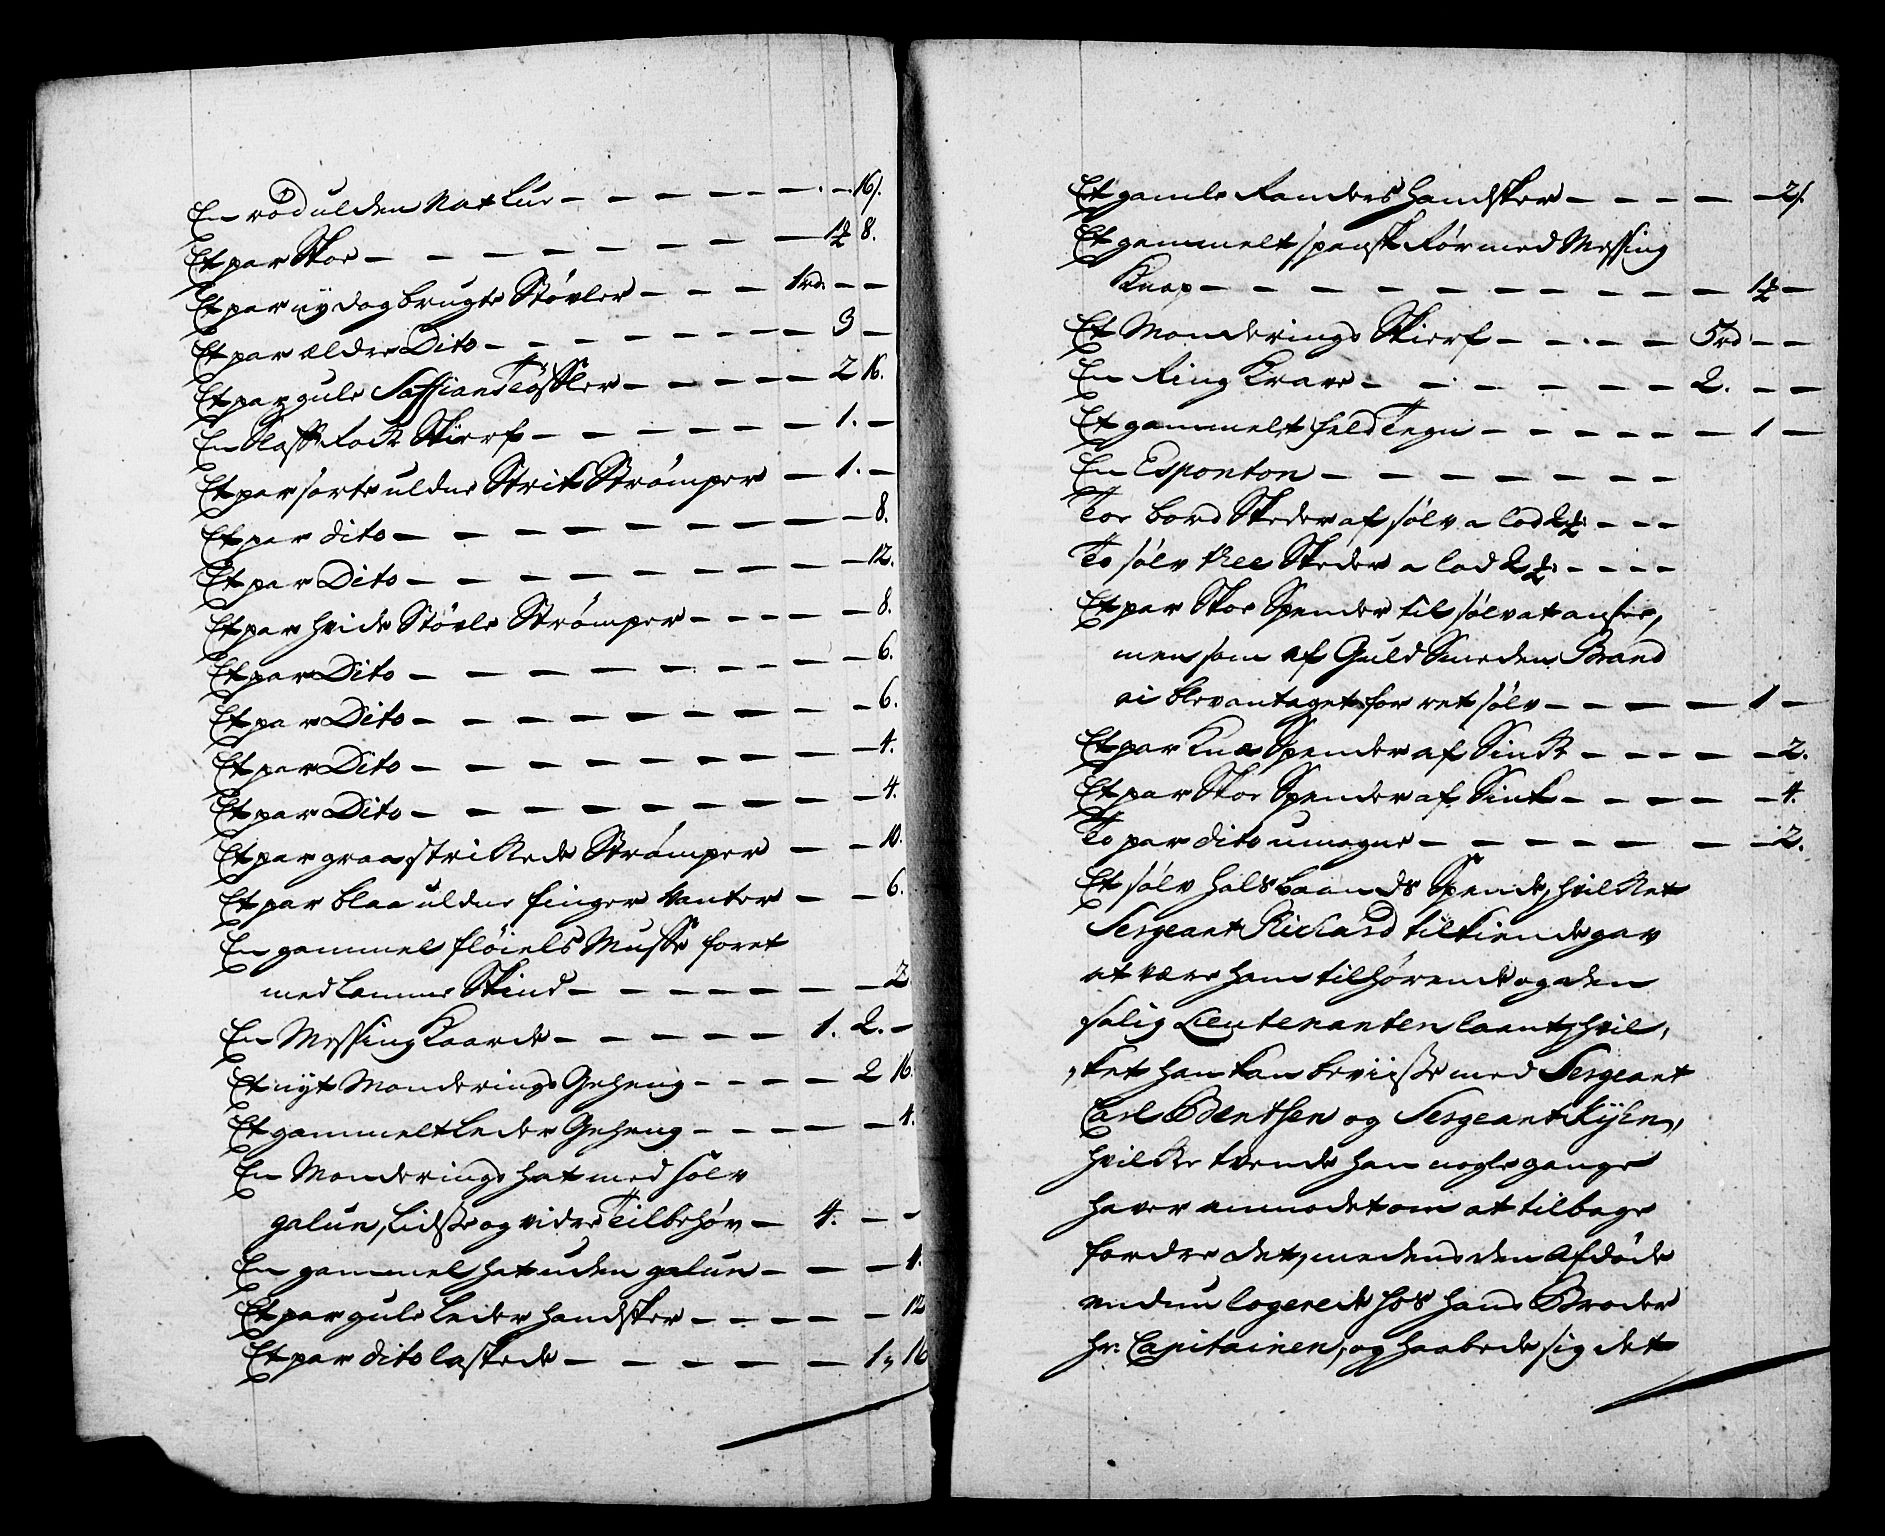 En rød ulden Nat Lue — — — — — — — 16 s.
Et par Skoe — — — — — — — 1½ 8.
Et par ny dog brugte Støvler — — — 1 rd. — —
Et par ældre Dito — — — — — — 3 —
Et par gule Saffians Tøfler — — — — 2 16.
En Slaff Rocks Skierf — — — — — 1. —
Et par sorte uldne Strik Strømper — 1. —
Et par dito — — — — — — — 8.
Et par Dito — — — — — — — 12.
Et par hvide Støvle Strømper — — — — 8.
Et par Dito — — — — — — — 6.
Et par Dito — — — — — — — 6.
Et par Dito — — — — — — — 4.
Et par Dito — — — — — — — 4.
Et par graa strikkede Strømper — — 10.
Et par blaa uldne finger Vanter — — 6.
En gammel fløiels Musse foret
med Lamme Skind — — — — — — 2
En Messing Kaarde — — — — — 1. 2. —
Et nyt Monderings Geheng — — — — 2 16.
Et gammelt Leder Geheng — — — — — 4.
En Monderings hat med sølv
galun, Lidsse og vidre Tilbehør — 4. — —
En gammel hat uden galun — — — 4.
Et par gule Leder handsker — — — — 12
Et par dito laskede — — — — — 1 „ 16
Et gamle Randers Handsker — — — — — 2 s.
Et gammelt spansk Rør med Messing
Knap — — — — — — — — 1½ —
Et Monderings Skierf — — — — 5 rd — —
En Ring Krave — — — — — 2. — —
Et gammelt feld Tegn — — — — — — 1 —
En Esponton — — — — — — —
Toe bord Skeder af sølv a lod 2½ — — —
To sølv thee Skeder a lod 2½ — — — —
Et par Skoe Spender til sølv at ansee,
men som af Guld Smeden Brand
ei blev antaget for ret sølv — — — — — 1 —
Et par Knæ Spender af Sink — — — — 2.
Et par Skoe Spender af Sink — — — — — 4.
To par dito umagne — — — — — — — 2.
Et sølv halsbaands Spende, hvilket
Sergeant Richard tilkiende gav
at være ham tilhørende og den
salig Lieutenanten laant, hvil,
,ket han kan beviisse med Sergeant
Carl Bdenthsen og Sergeant Ryhn,
hvilke tvende han nogle gange
haver anmodet om at tilbage
fordre det, medens den Afdøde
endnu logerede hos hans Broder
hr: Capitainen, og haabede sig det